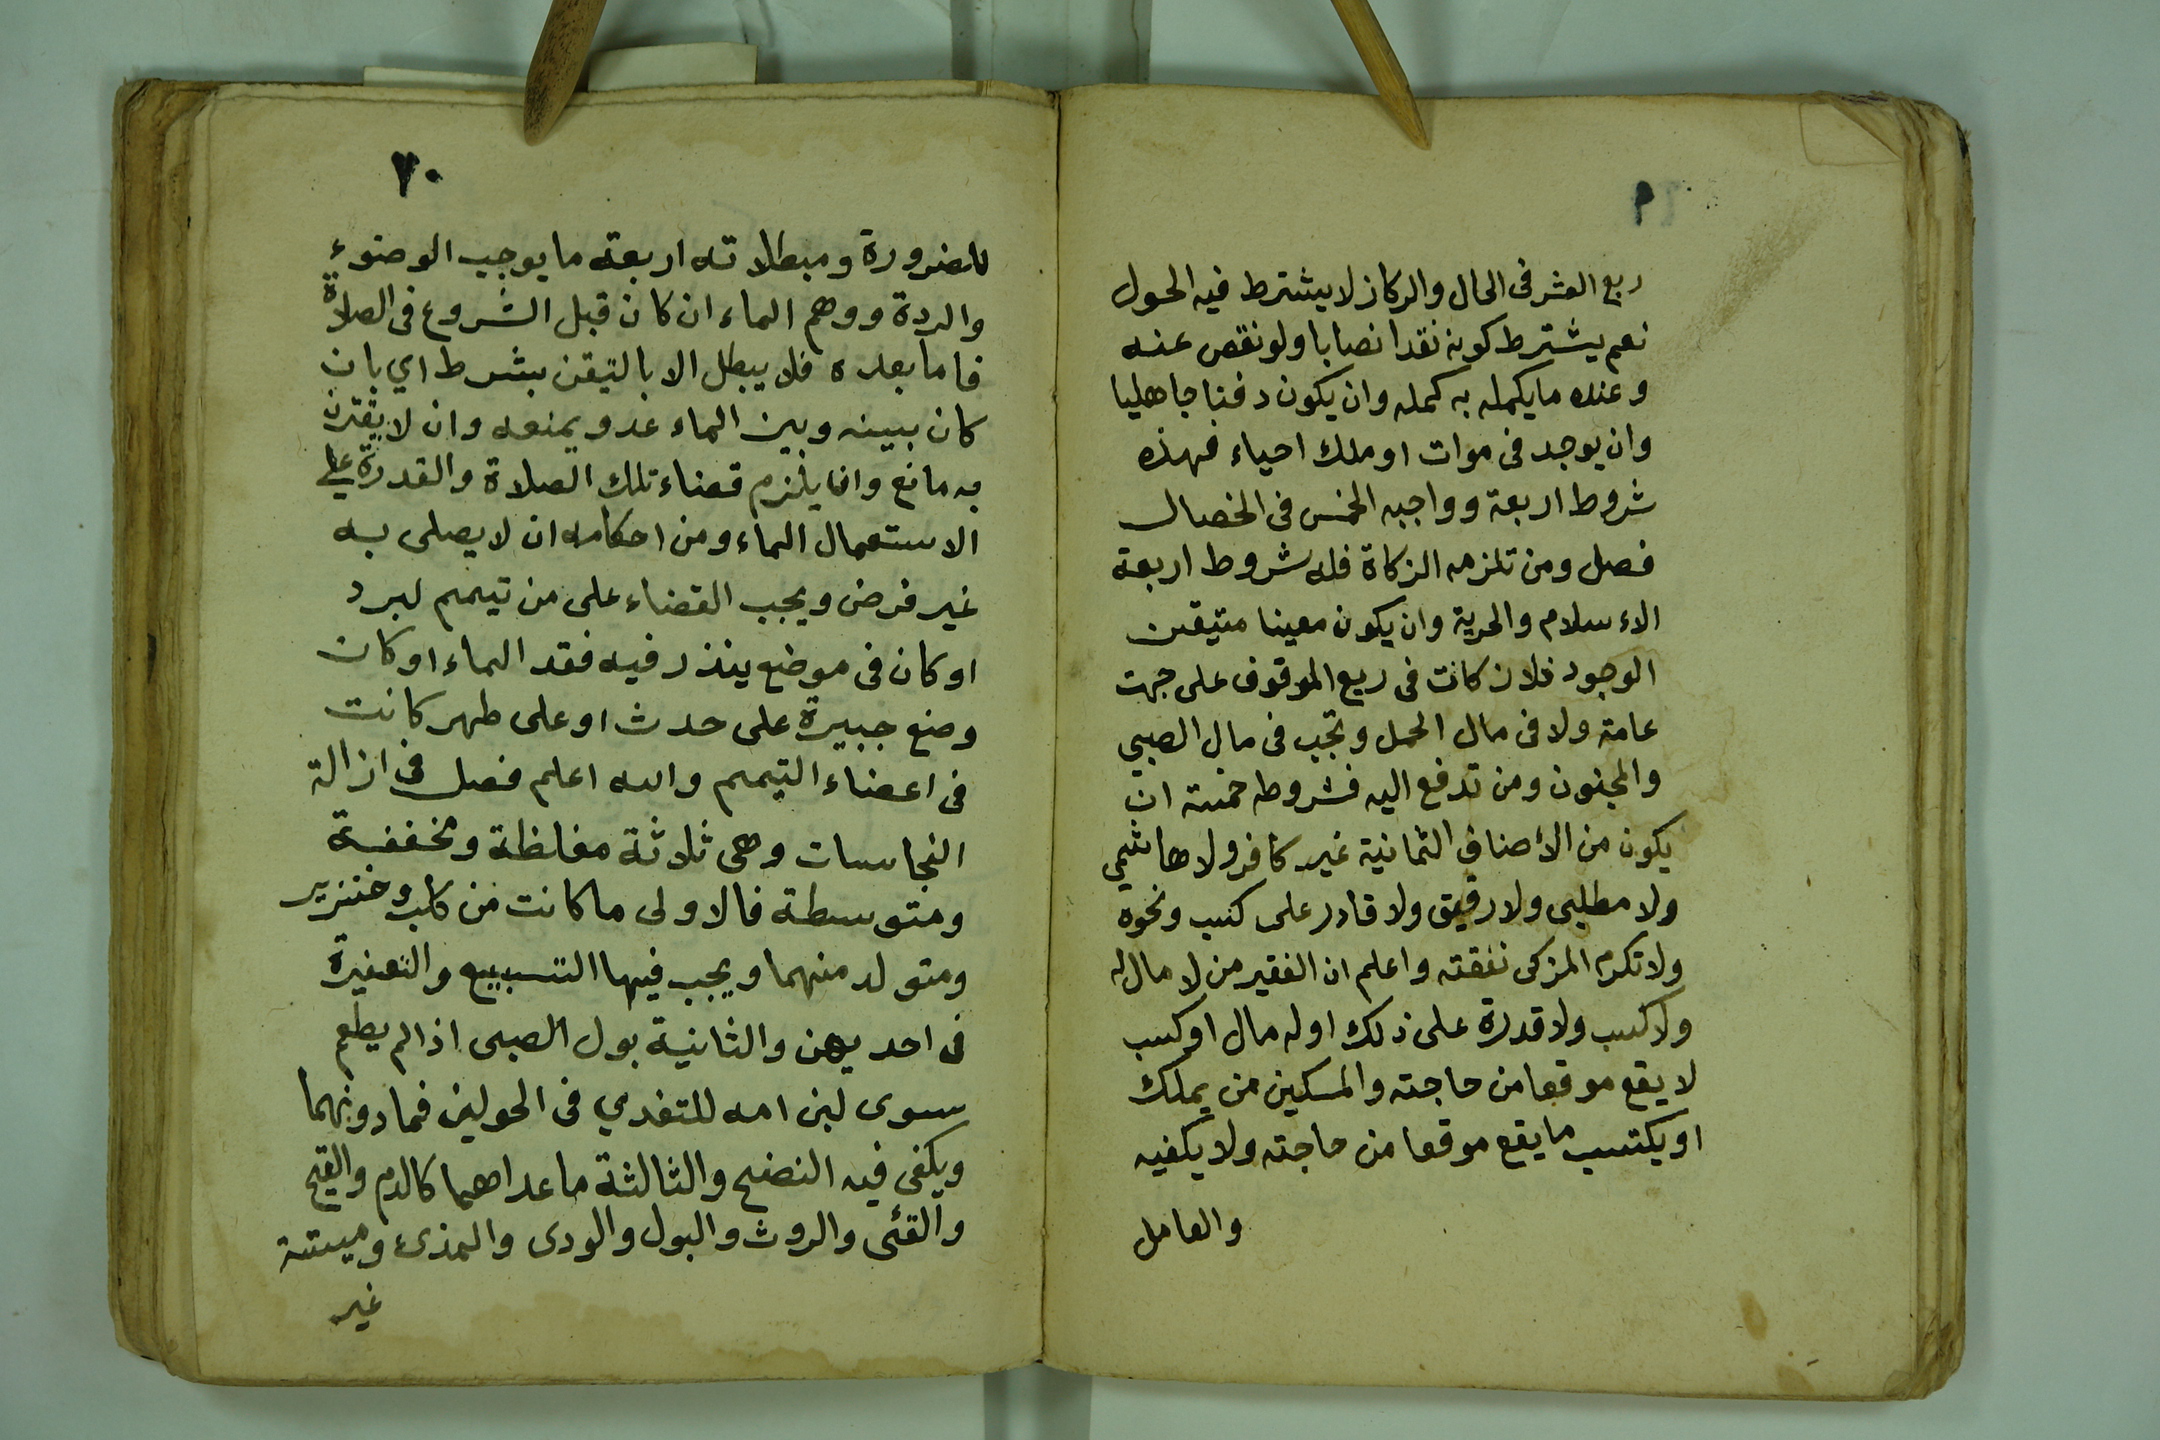 ٩
ربع العشر فى الحال والركاز لا يشترط فيه الحول
نعم يشترط كونه نقدا نصابا ولو نقص عنه
وعنده ما يكمله به كمله وان يكون دفنا جاهليا
وان يوجد فى موات او ملك احياء فهذه
شروط اربعة وواجبه الخمس فى الخصال
فصل ومن تلزمه الزكاة فله شروط اربعة
الاء سلام والحرية وان يكون معينا متيقن
الوجود فلا ن كانت فى ريع الموقوف على جهت
عامة ولا فى مال الحمل وتجب فى مال الصبي
والمجنون ومن تدفع اليه فشروطه خمسة ان
يكون من الأصناف الثمانية غير كافر ولا هاشمي
ولا مطلبى ولا رقيق ولا قادر على كسب ونحوه
ولا تكزم المزكى نفقته واعلم ان الفقير من لا مال له
ولا كسب ولا قدرة على ذلك او له مال او كسب
لا يقع موقعا من حاجته والمسكين من يملك
او يكتسب ما يقع موقعا من حاجته ولا يكفيه
والعامل
٧٠
للضرورة ومبطلاته اربعة ما يوجب الوضوء
والردة ووهم الماء ان كان قبل الشروع فى الصلاة
فاما بعده فلا يبطل الا بالتيقن بشرط اي بان
كان بينه وبين الماء عدو يمنعه وان لا يقترن
به مانع وانما يلزم قضاء تلك الصلاة والقدرة على
الاستعمال الماء ومن احكامه ان لا يصلى به
غير فرض ويجب القضاء على من تيمم لبرد
او كان فى موضع ينذر فيه فقد الماء او كان
وضع جبيرة على حدث او على طهر كانت
فى اعضاء التيمم والله اعلم فصل فى ازالة
النجاسات وهى ثلاثة مغلظة ومخففة
ومتوسطة فالاولى ما كانت من كلب وخنزير
ومتولد منهما ويجب فيها التسبيع والتعفيرة
فى احد يهن والثانية بول الصبى اذا لم يطعم
سوى لبن امه للتغدي فى الحولين فما دونهما
ويكفى فيه النضح والثالثة ما عداهما كالدم والقيح
والقئى والروث والبول والودى والمذى وميتة
غير